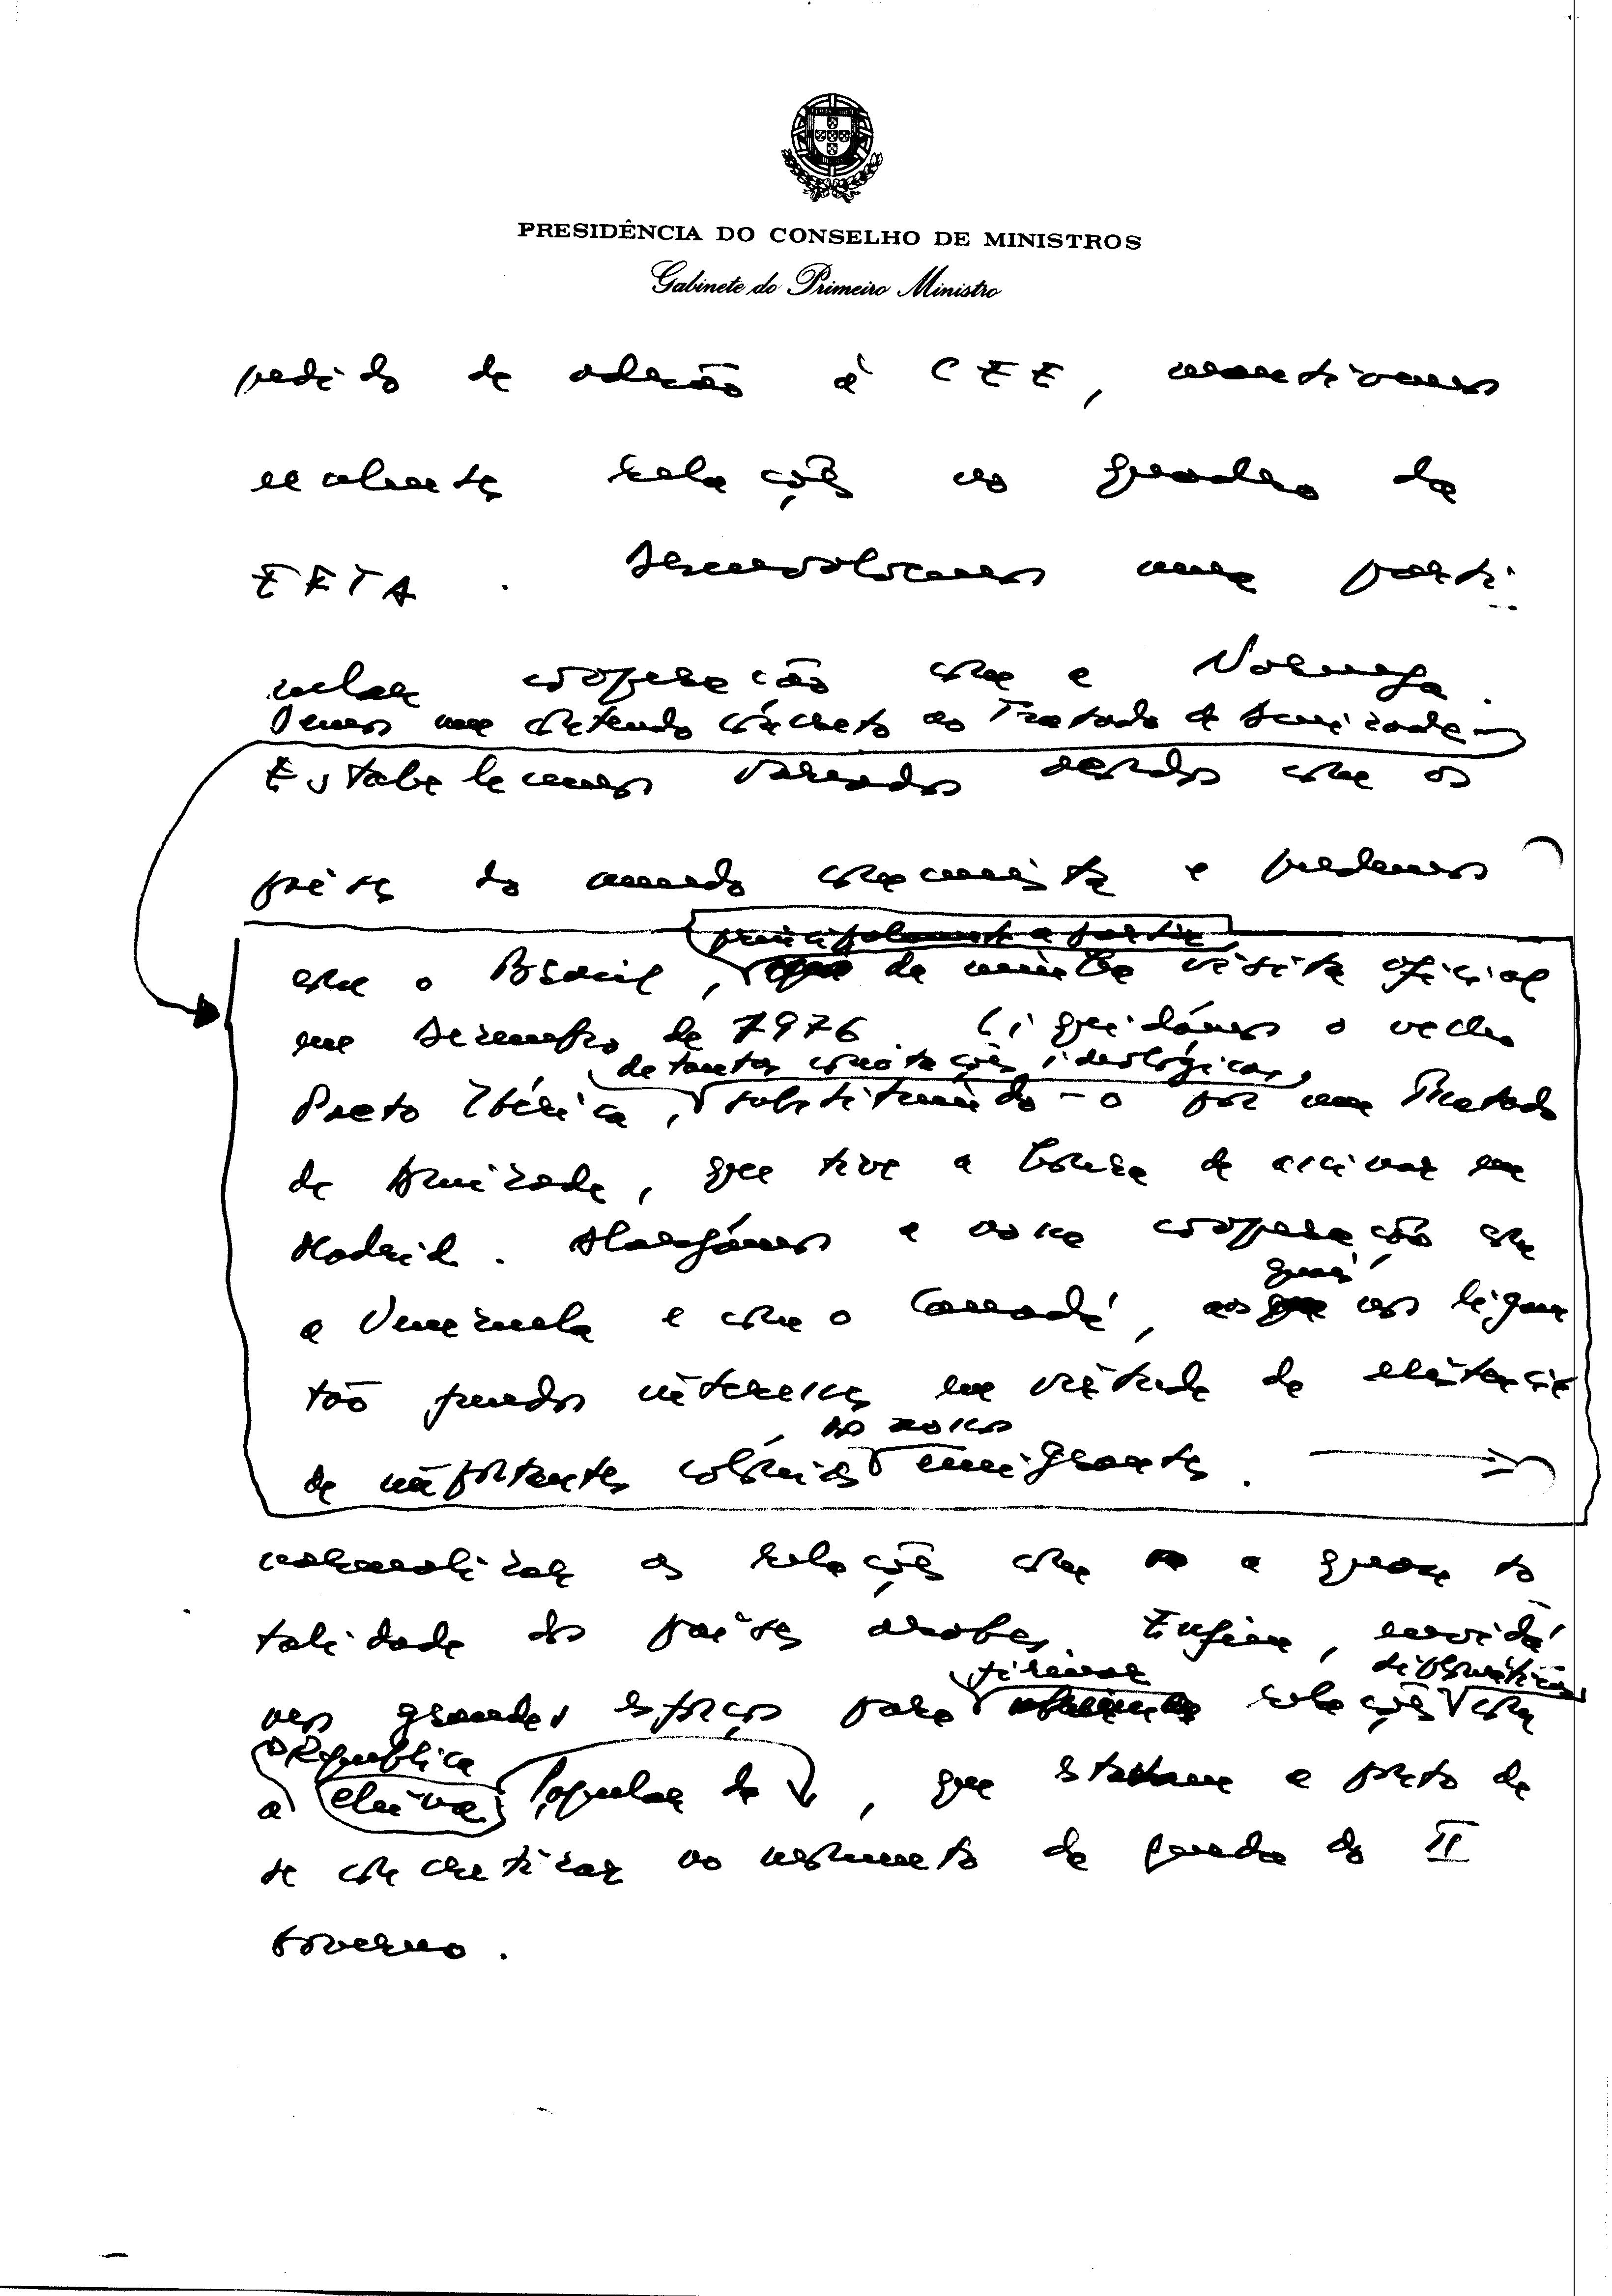 PRESIDÊNCIA DO CONSELHO DE MINISTROS
Gabinete do Primeiro Ministro
pedido de adesão à CEE, mantivemos
excelentes relações no quadro da
EFTA. Desenvolvemos uma parti-
cular cooperação com a Noruega.
Demos um conteúdo concreto ao Tratado de Amizade
Estabelecemos variados acordos com os
países do mundo comunista e pudemos
principalmente a partir
com o Brasil, da minha visita oficial
em Dezembro de 1976. Liquidámos o velho
de tantas conotações ideológicas,
Pacto Ibérico, substituindo-o por um Tratado
de Amizade, que tive a honra de assinar em
Madrid. Alargámos a nossa cooperação com
quais
a Venezuela e com o Canadá, aos nos ligam
tão fundos interesses em virtude da existência
de nossos
de importantes colónias emigrantes.
normalizar as relações com a quase to
talidade dos países árabes. Enfim, envidá
firmar diplomáticas
mos grandes esforços para relações com
República
a China Popular da, que estavam a ponto de
se concretizar no momento da queda do II
Governo.